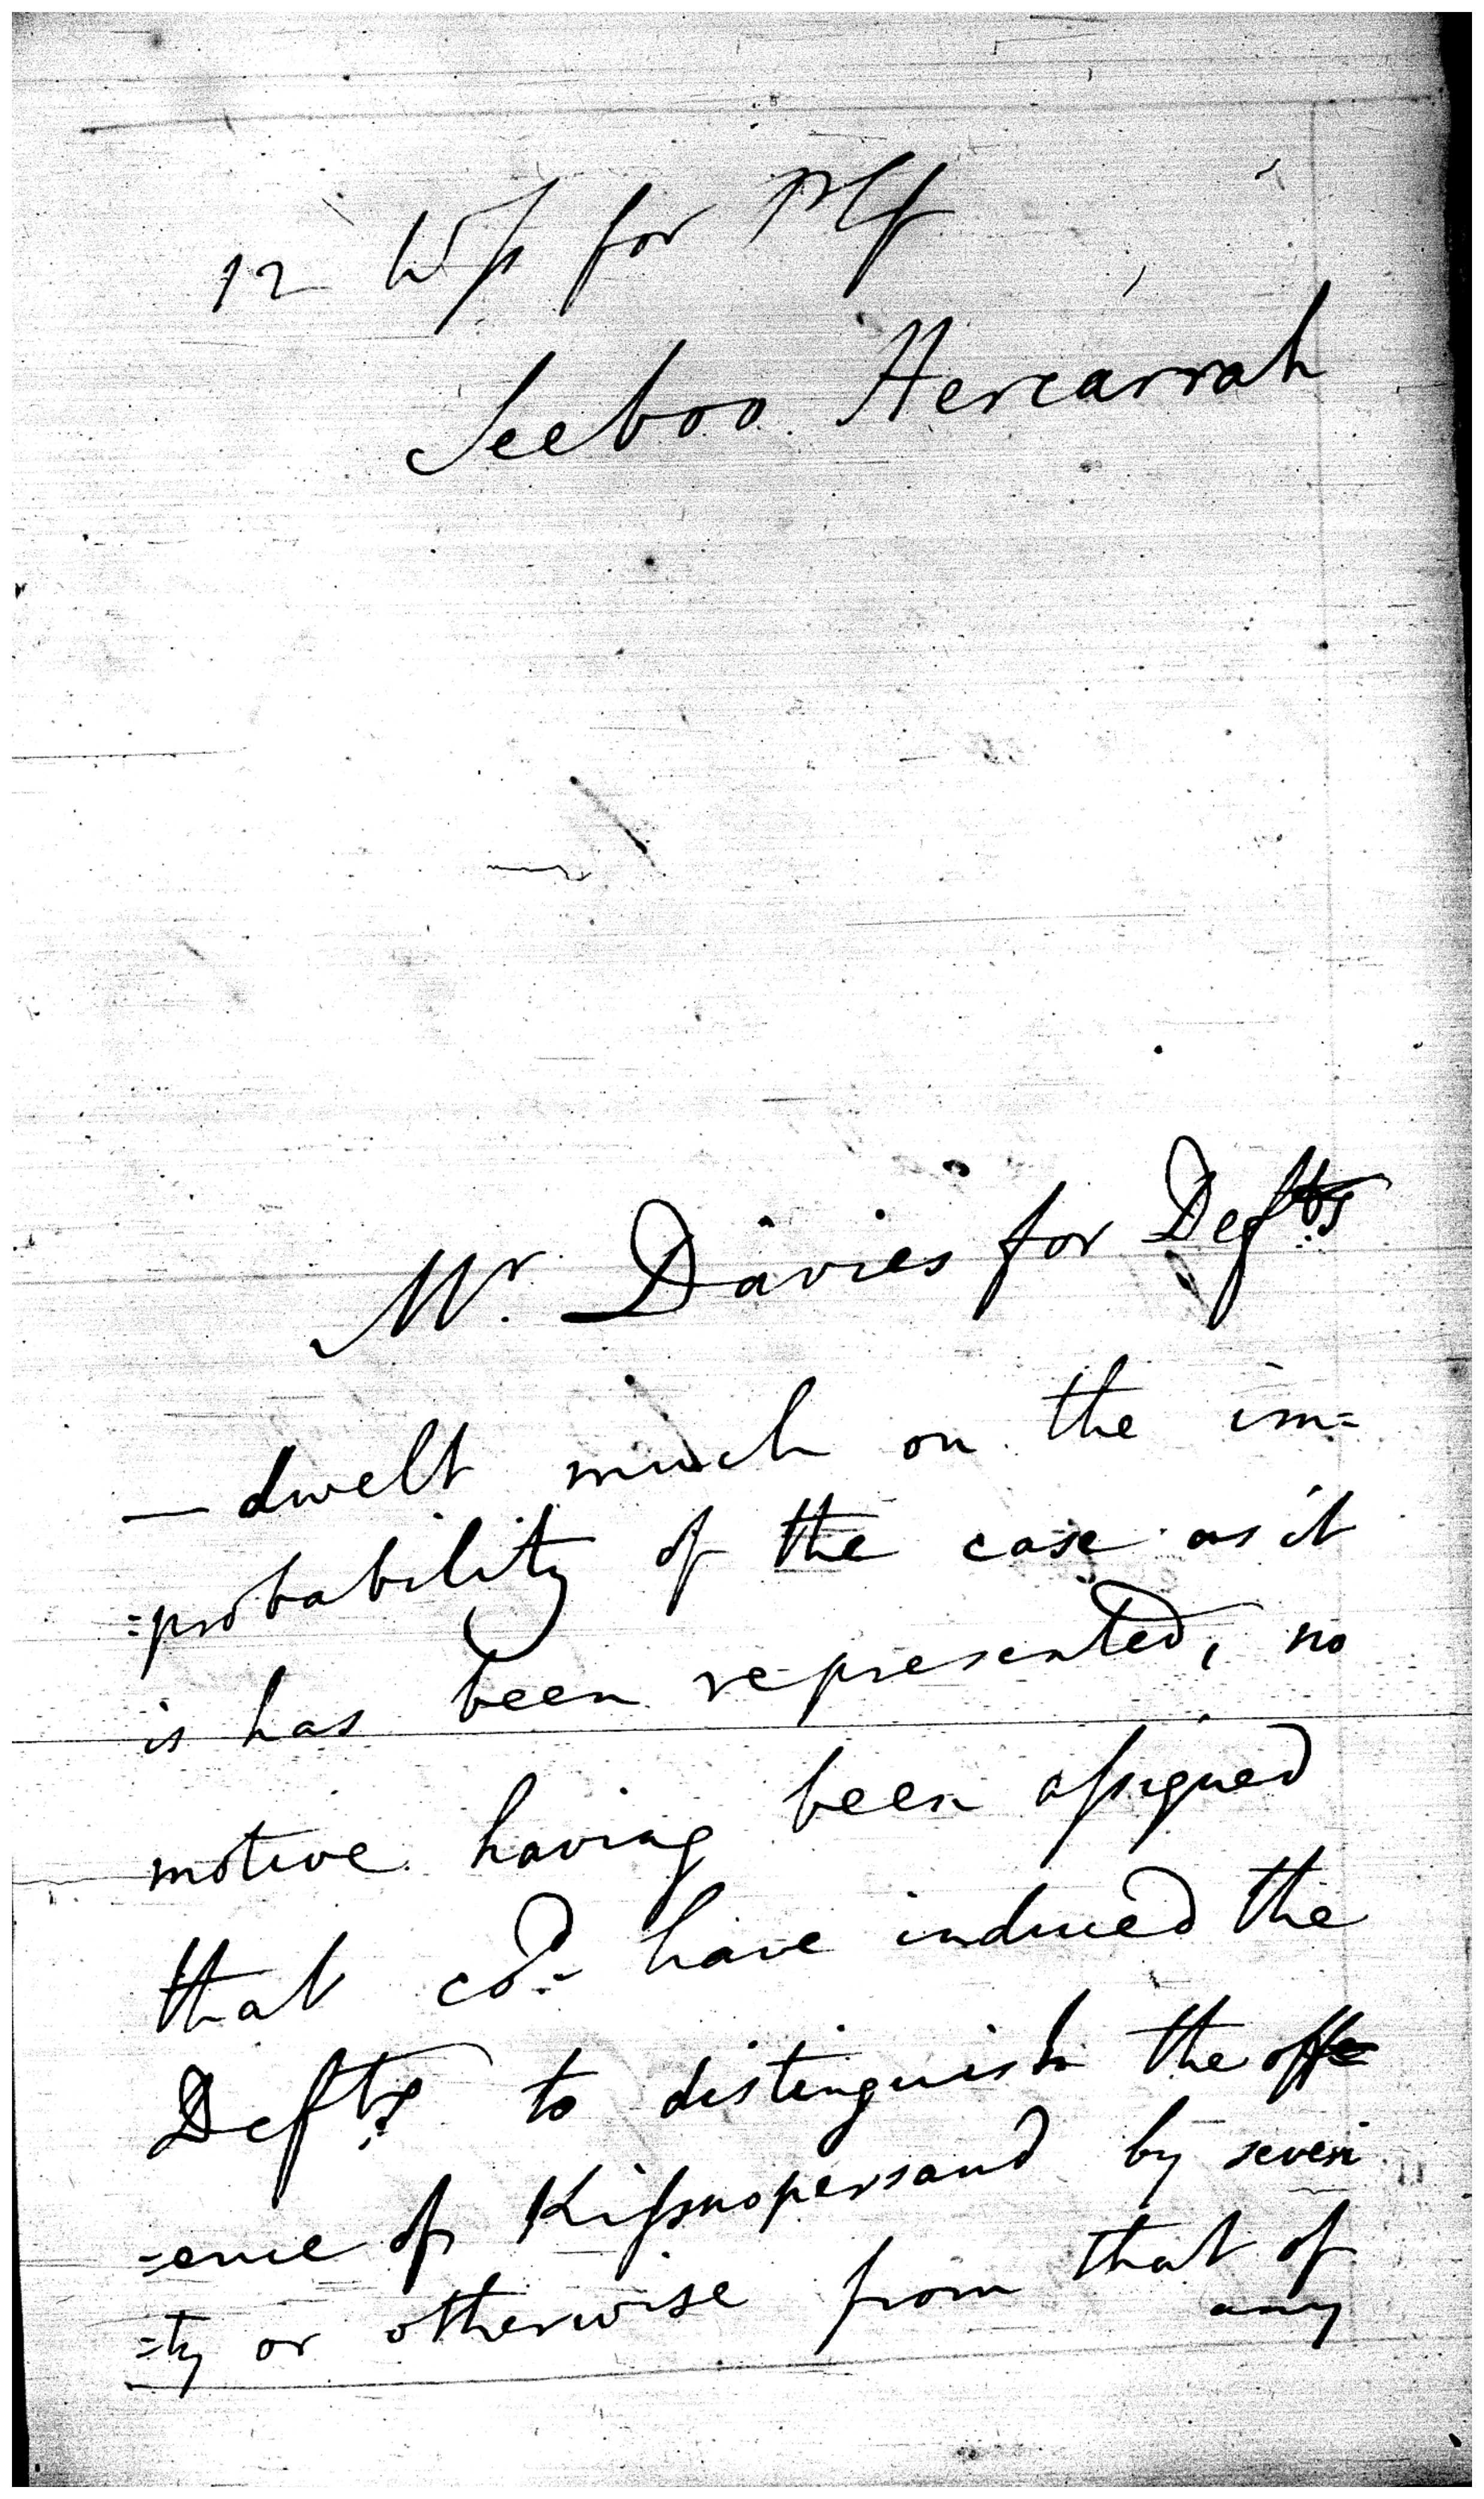 12 Wss for Plf
Seeboo Hercarrah
Mr. Davies for Defts
— dwelt much on the im=
=probability of the case as it
is has been represented, no
motive having been assigned
that cod. have induced the
Defts to distinguish the offe
=ence of Kissnopersaud by severi
=ty or otherwise from that of
any